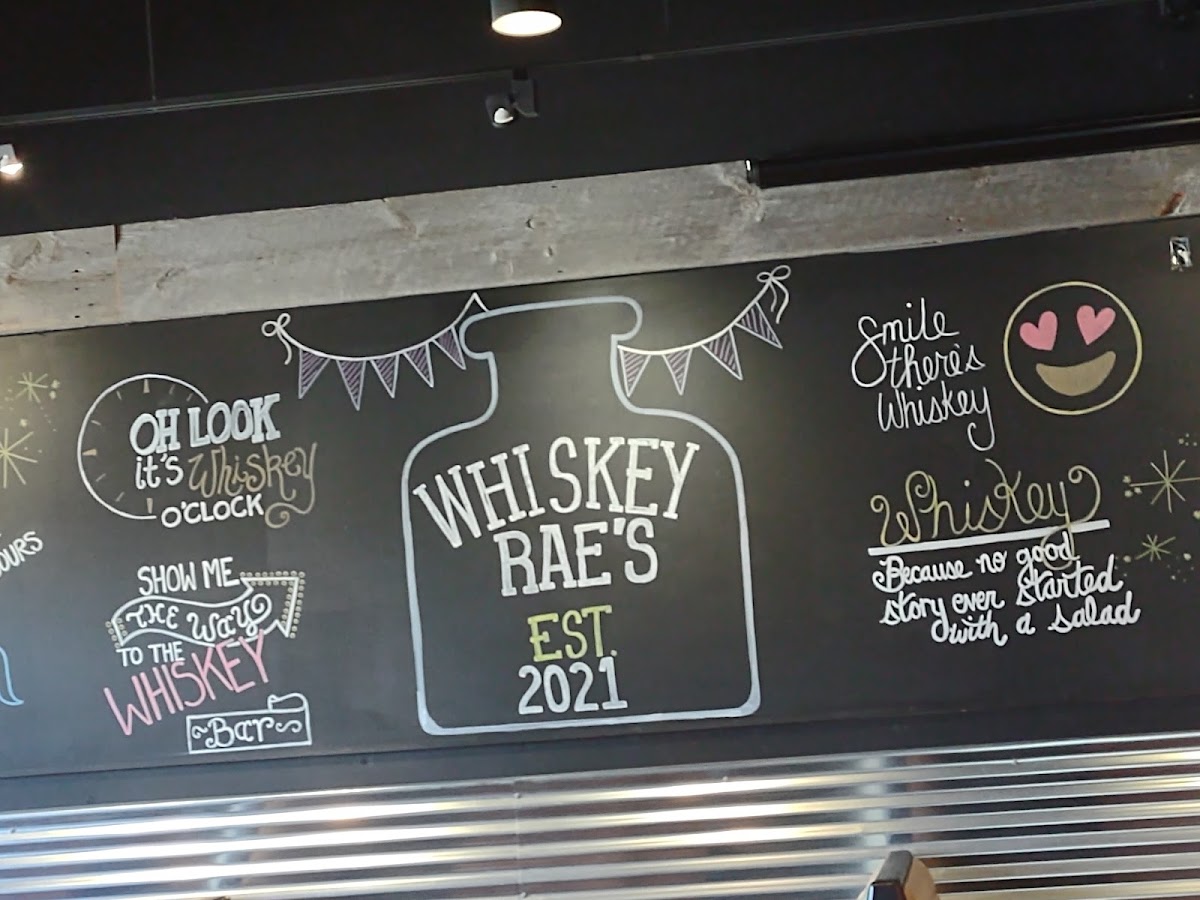 OH LOOK
it's Whiskey
O'CLOCK
SHOW ME
THE WAY
TO THE
WHISKEY
~Bar~
WHISKEY
RAE'S
EST.
2021
Smile
there's
Whiskey
Whiskey
Because no good
story ever started
with a salad